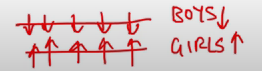 BOYS↓
GIRLS↑